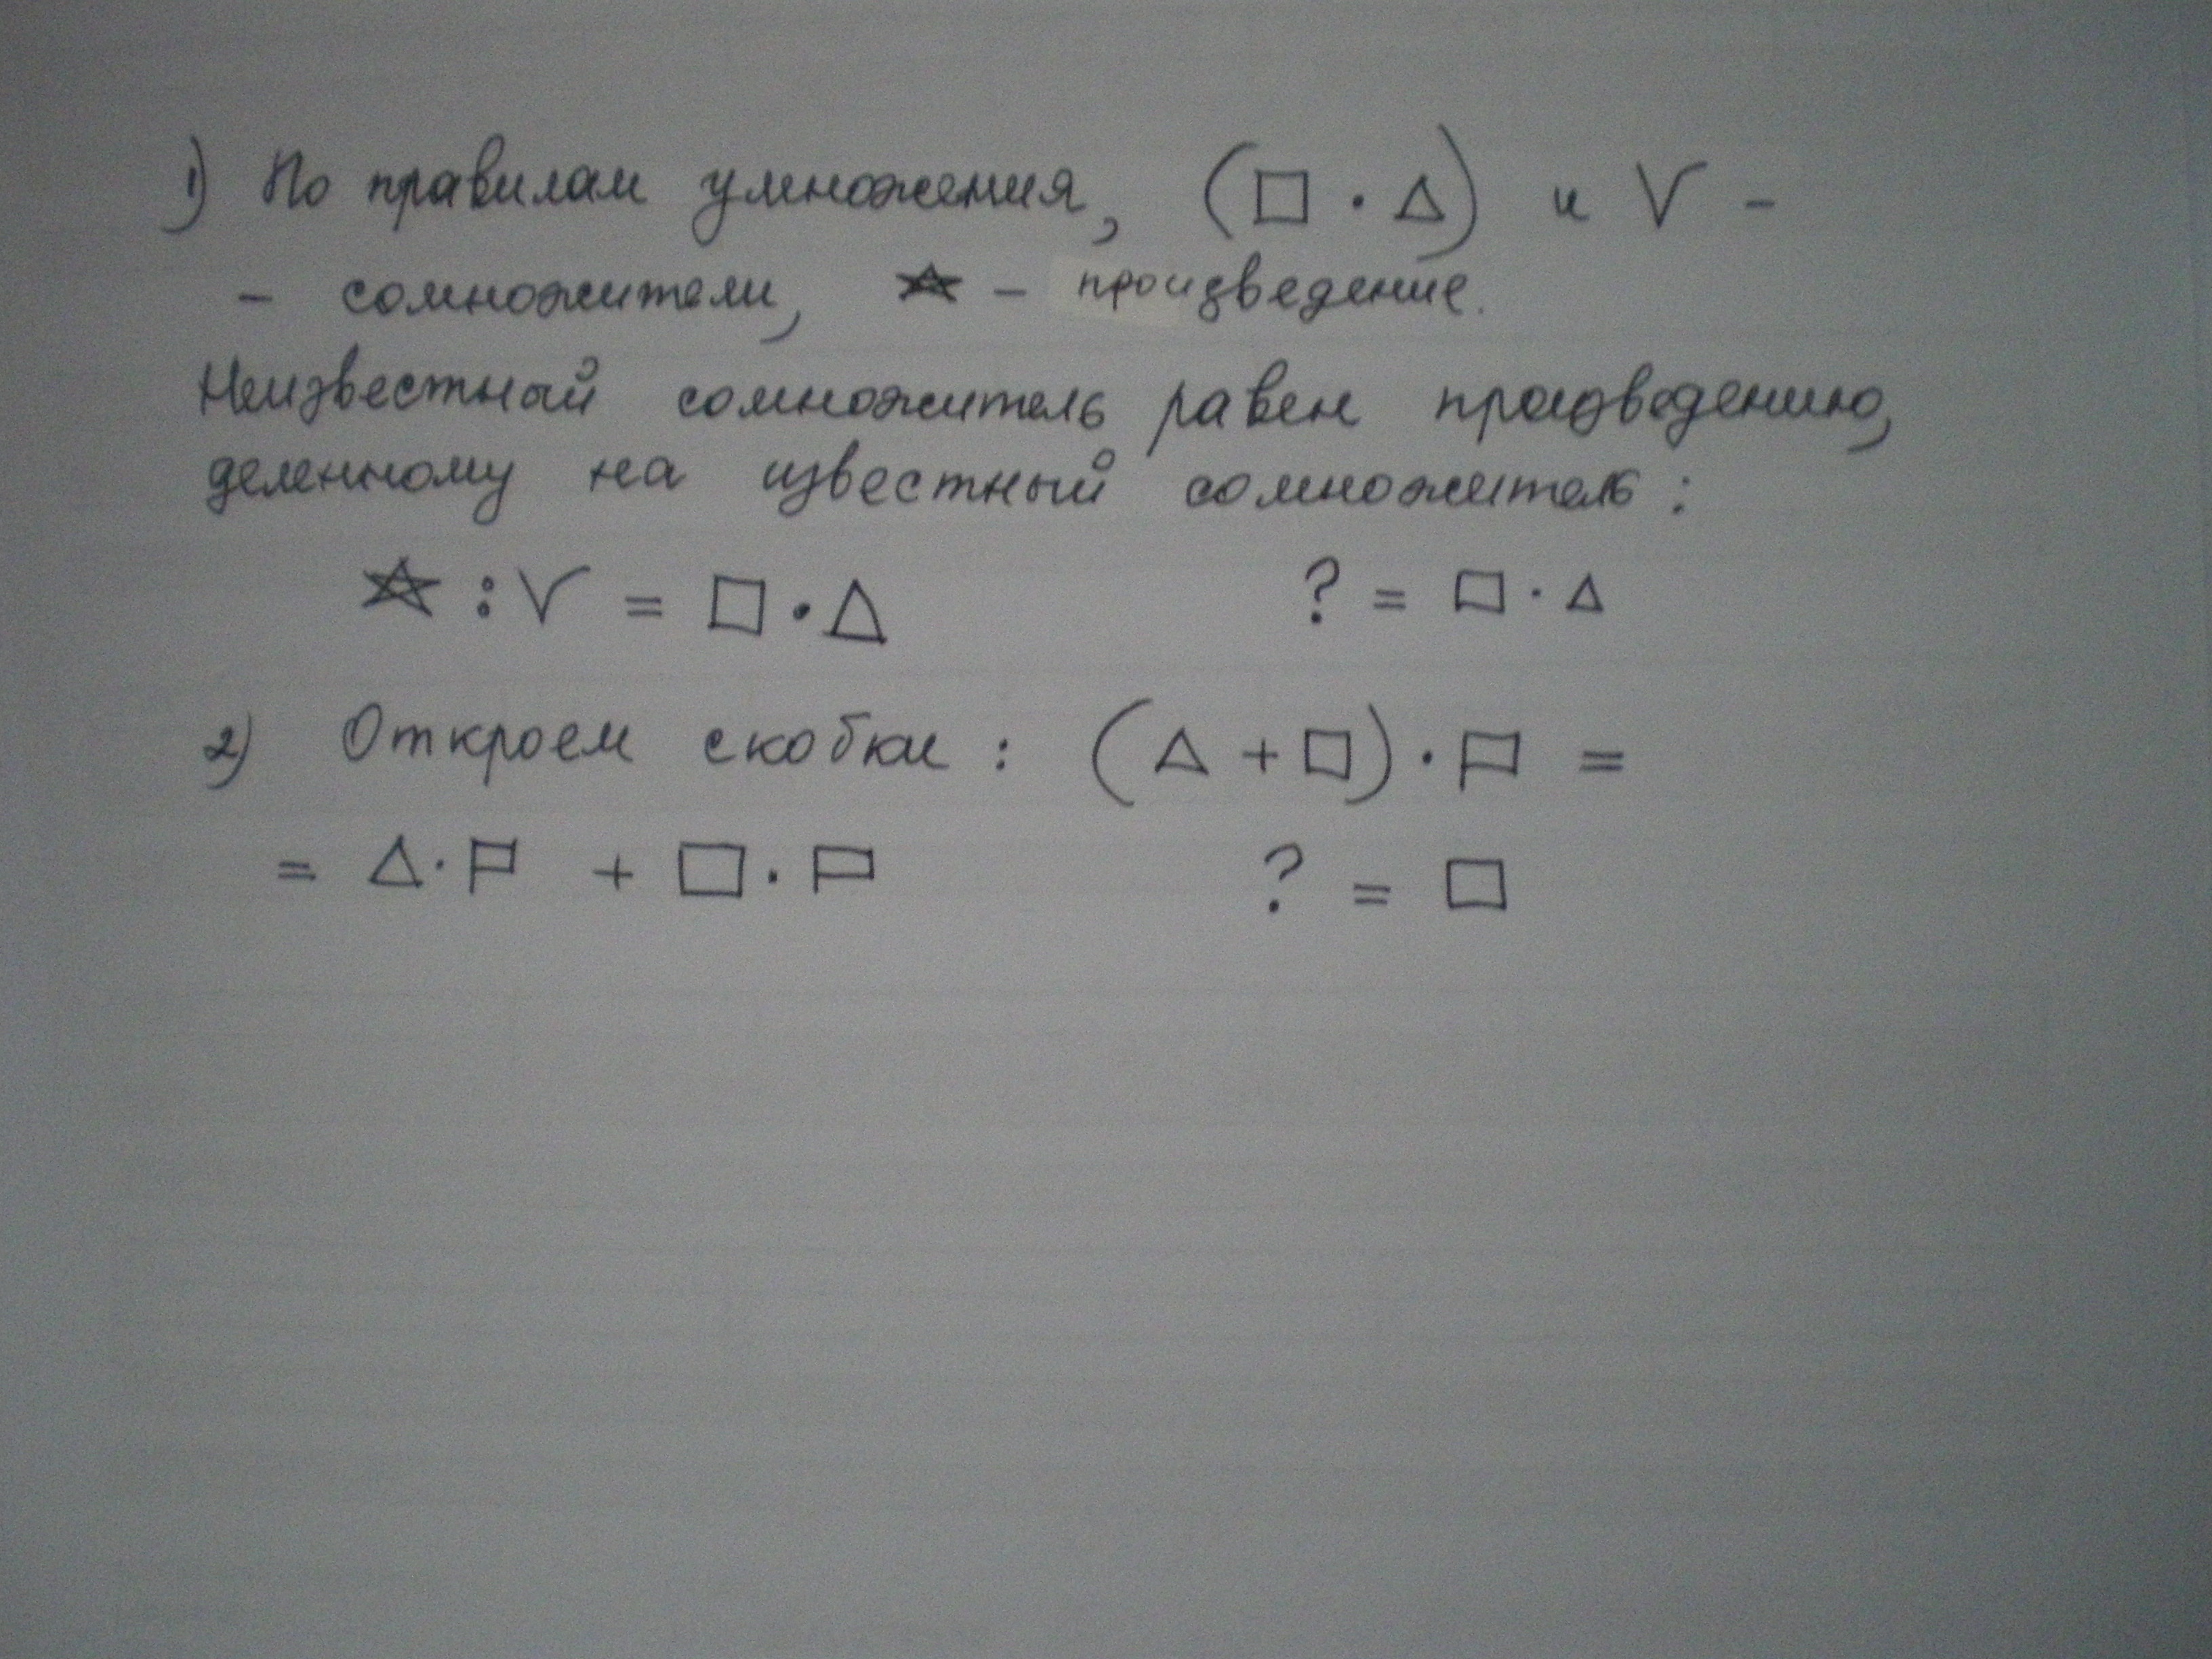 1) По правилам умножения, (□ · △) и V –
– сомножители, ☆ – произведение.
Неизвестный сомножитель равен произведению,
деленному на известный сомножитель:
☆ : V = □ · △ ? = □ · △
2) Откроем скобки: (△ + □) · ⚐ =
= △ · ⚐ + □ · ⚐ ? = □